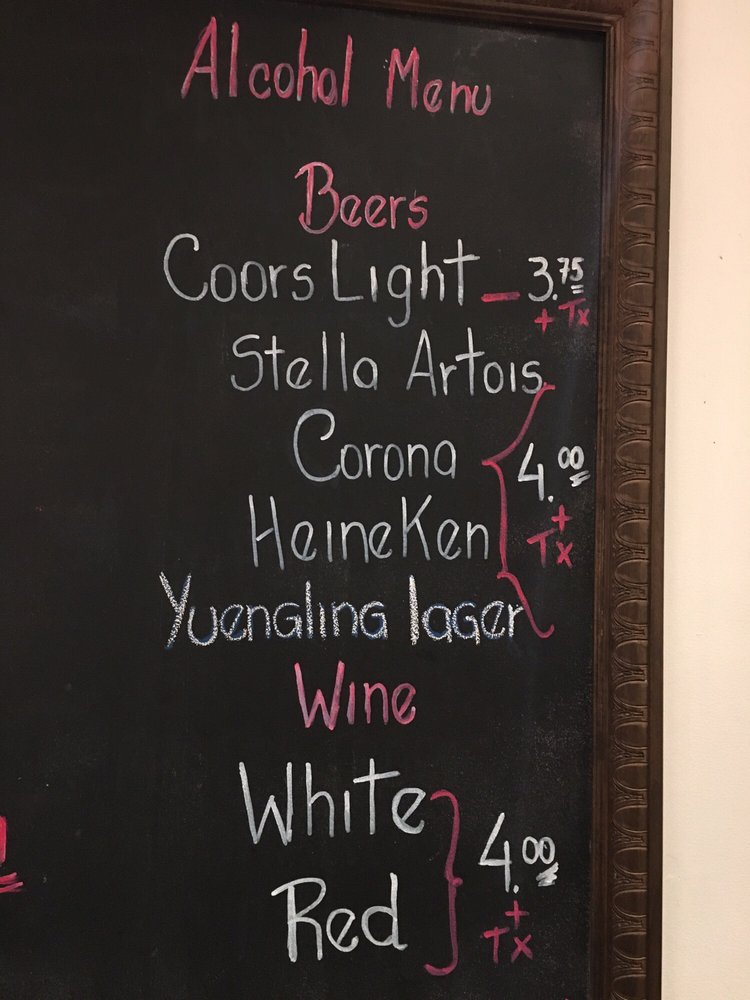 Alcohol Menu
Beers
Coors Light - 3.75
+ Tx
Stella Artois
Corona
4.00
HeineKen
+
Tx
Yuengling lager
Wine
White
4.00
Red
+
Tx